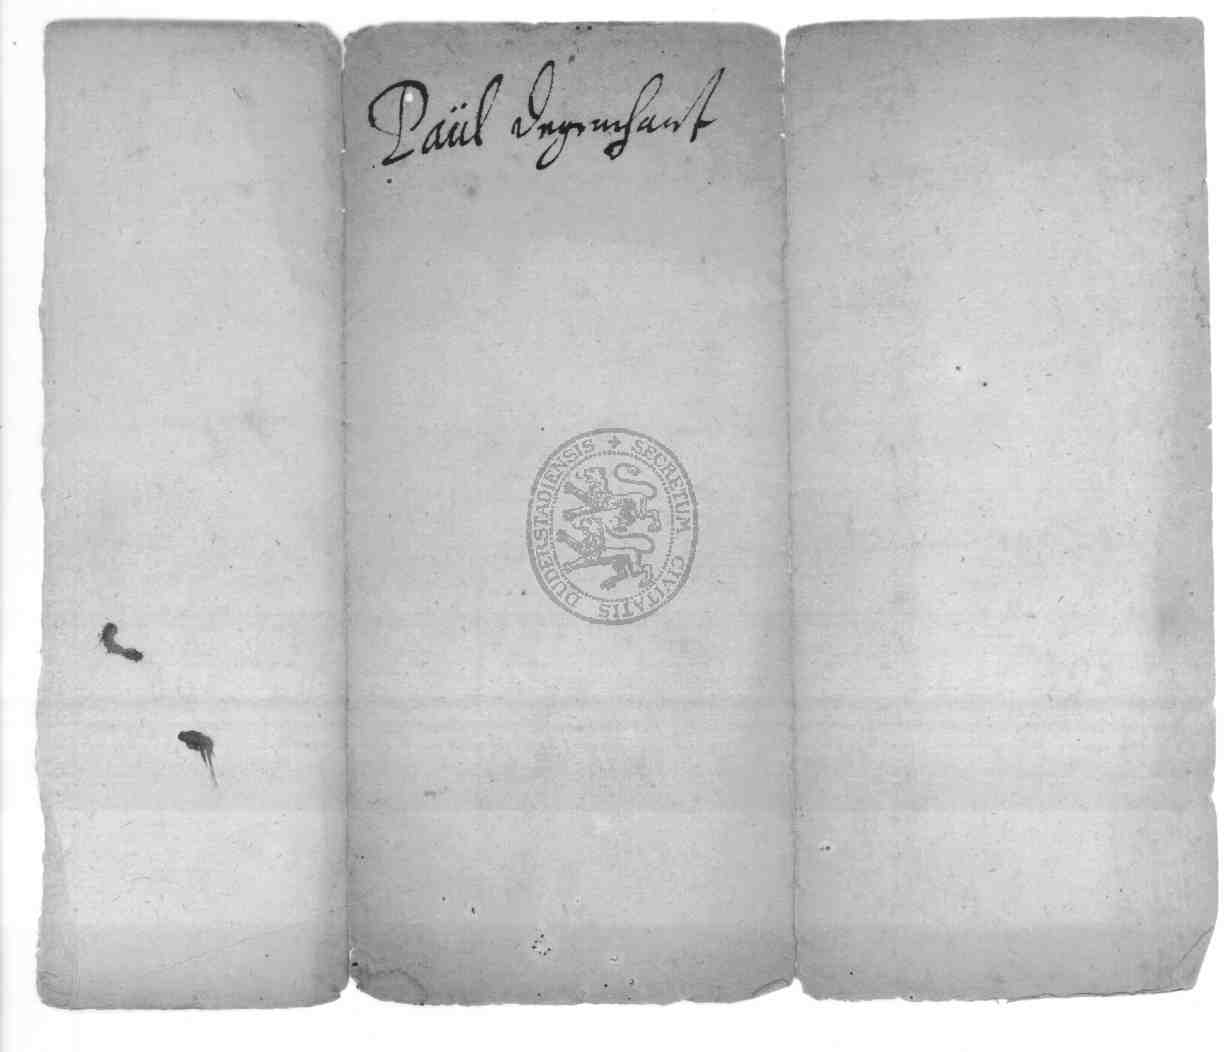 Paül Degenhart
SECRETUM CIVITATIS DUDERSTADIENSIS